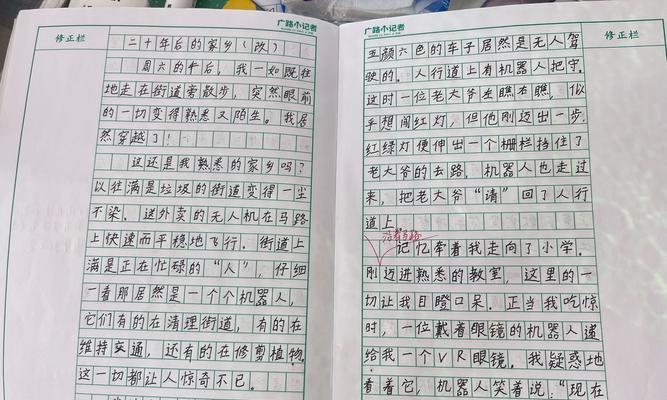 广路小记者
修正栏
二十年后的家乡（改）
周六的午后，我一如既往
地走在街道旁散步，突然眼前
的一切变得熟悉又陌生。我居
然穿越了！
这还是我熟悉的家乡吗？
以往满是垃圾的街道变得一尘
不染。送外卖的无人机在马路
上快速而平稳地飞行。街道上
满是正在忙碌的“人”，仔细
一看那居然是一个个机器人，
它们有的在清理街道，有的在
维持交通，还有的在修剪植物。
这一切都让人惊奇不已。
广路小记者
修正栏
五颜六色的车子居然是无人驾
驶的。人行道上有机器人把守。
这时一位老大爷左瞧右瞧，似
乎想闯红灯，但他刚迈出一步，
红绿灯便伸出一个栅栏挡住了
老大爷的去路，机器人也走过
来，把老大爷“请”回了人行
道上。
记忆牵着我走向了小学。
刚迈进熟悉的教室，这里的一
切让我目瞪口呆。正当我吃惊
时，一位戴着眼镜的机器人递
给我一个VR眼镜。我疑惑地
看着它，机器人笑着说：“现在